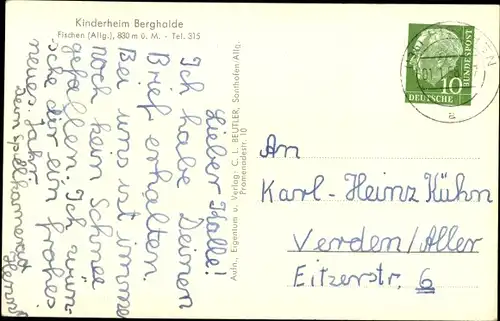 Kinderheim Berghalde
Fischen (Allg.), 830 m ü. M. - Tel. 315
Lieber Kalle!
Ich habe Deinen
Brief erhalten.
Bei uns ist immer
noch kein Schnee
gefallen. Ich wün-
sche dir ein frohes
neues Jahr
Dein Spielkamerad
Aufn., Eigentum u. Verlag: C. L. BEUTLER, Sonthofen/Allg.
Promenadestr. 10
DEUTSCHE BUNDESPOST
10
a
An
Karl-Heinz Kühn
Verden/Aller
Eitzerstr. 6